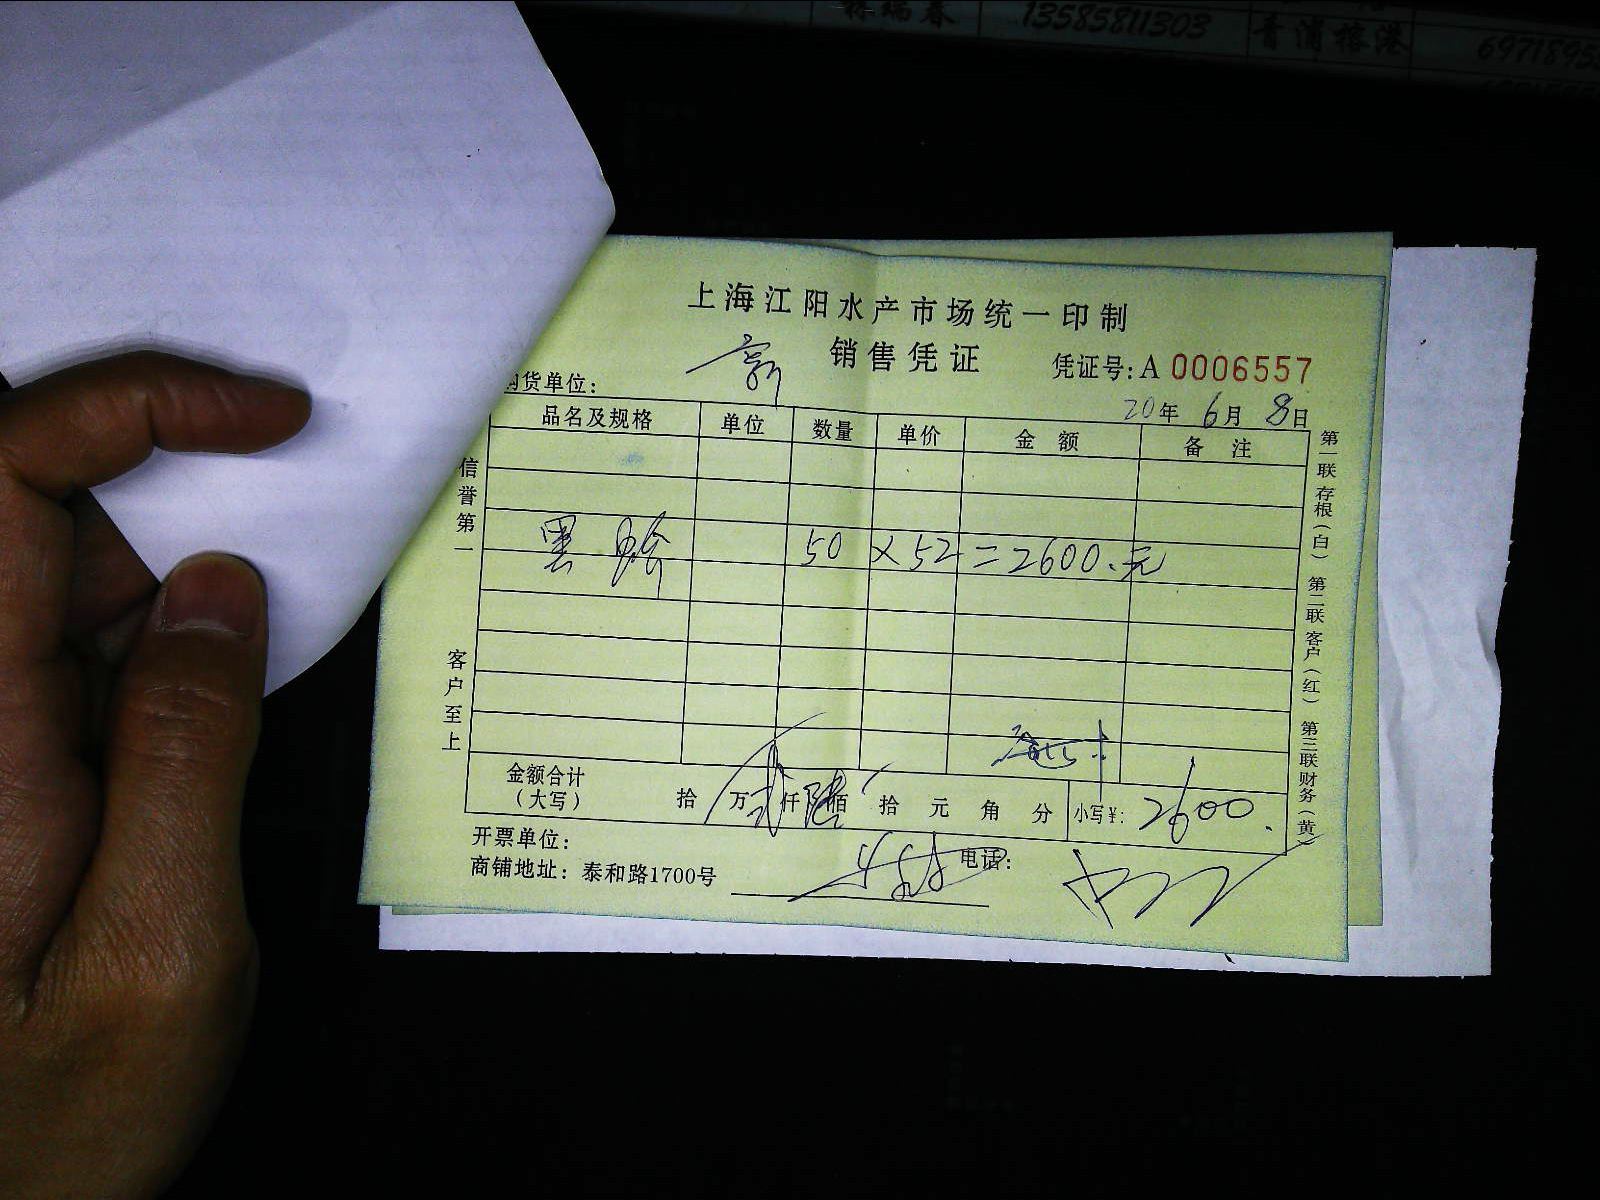 13585811303 青浦
上海江阳水产市场统一印制
销售凭证 凭证号:A 0006557
购货单位:
20年 6月 8日
品名及规格 单位 数量 单价 金 额 备 注
黑 50 × 52 = 2600.元
金额合计(大写) 拾 万 贰 仟 陆 佰 拾 元 角 分 小写¥: 2600.
开票单位:
商铺地址: 泰和路1700号 电话:
信誉第一
客户至上
第一联 存根(白) 第二联 客户(红) 第三联 财务(黄)